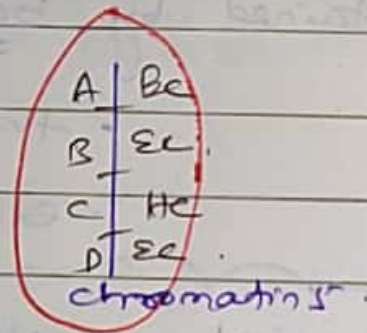 A Bc
B Ec.
C Hc
D Ec.
chromatins